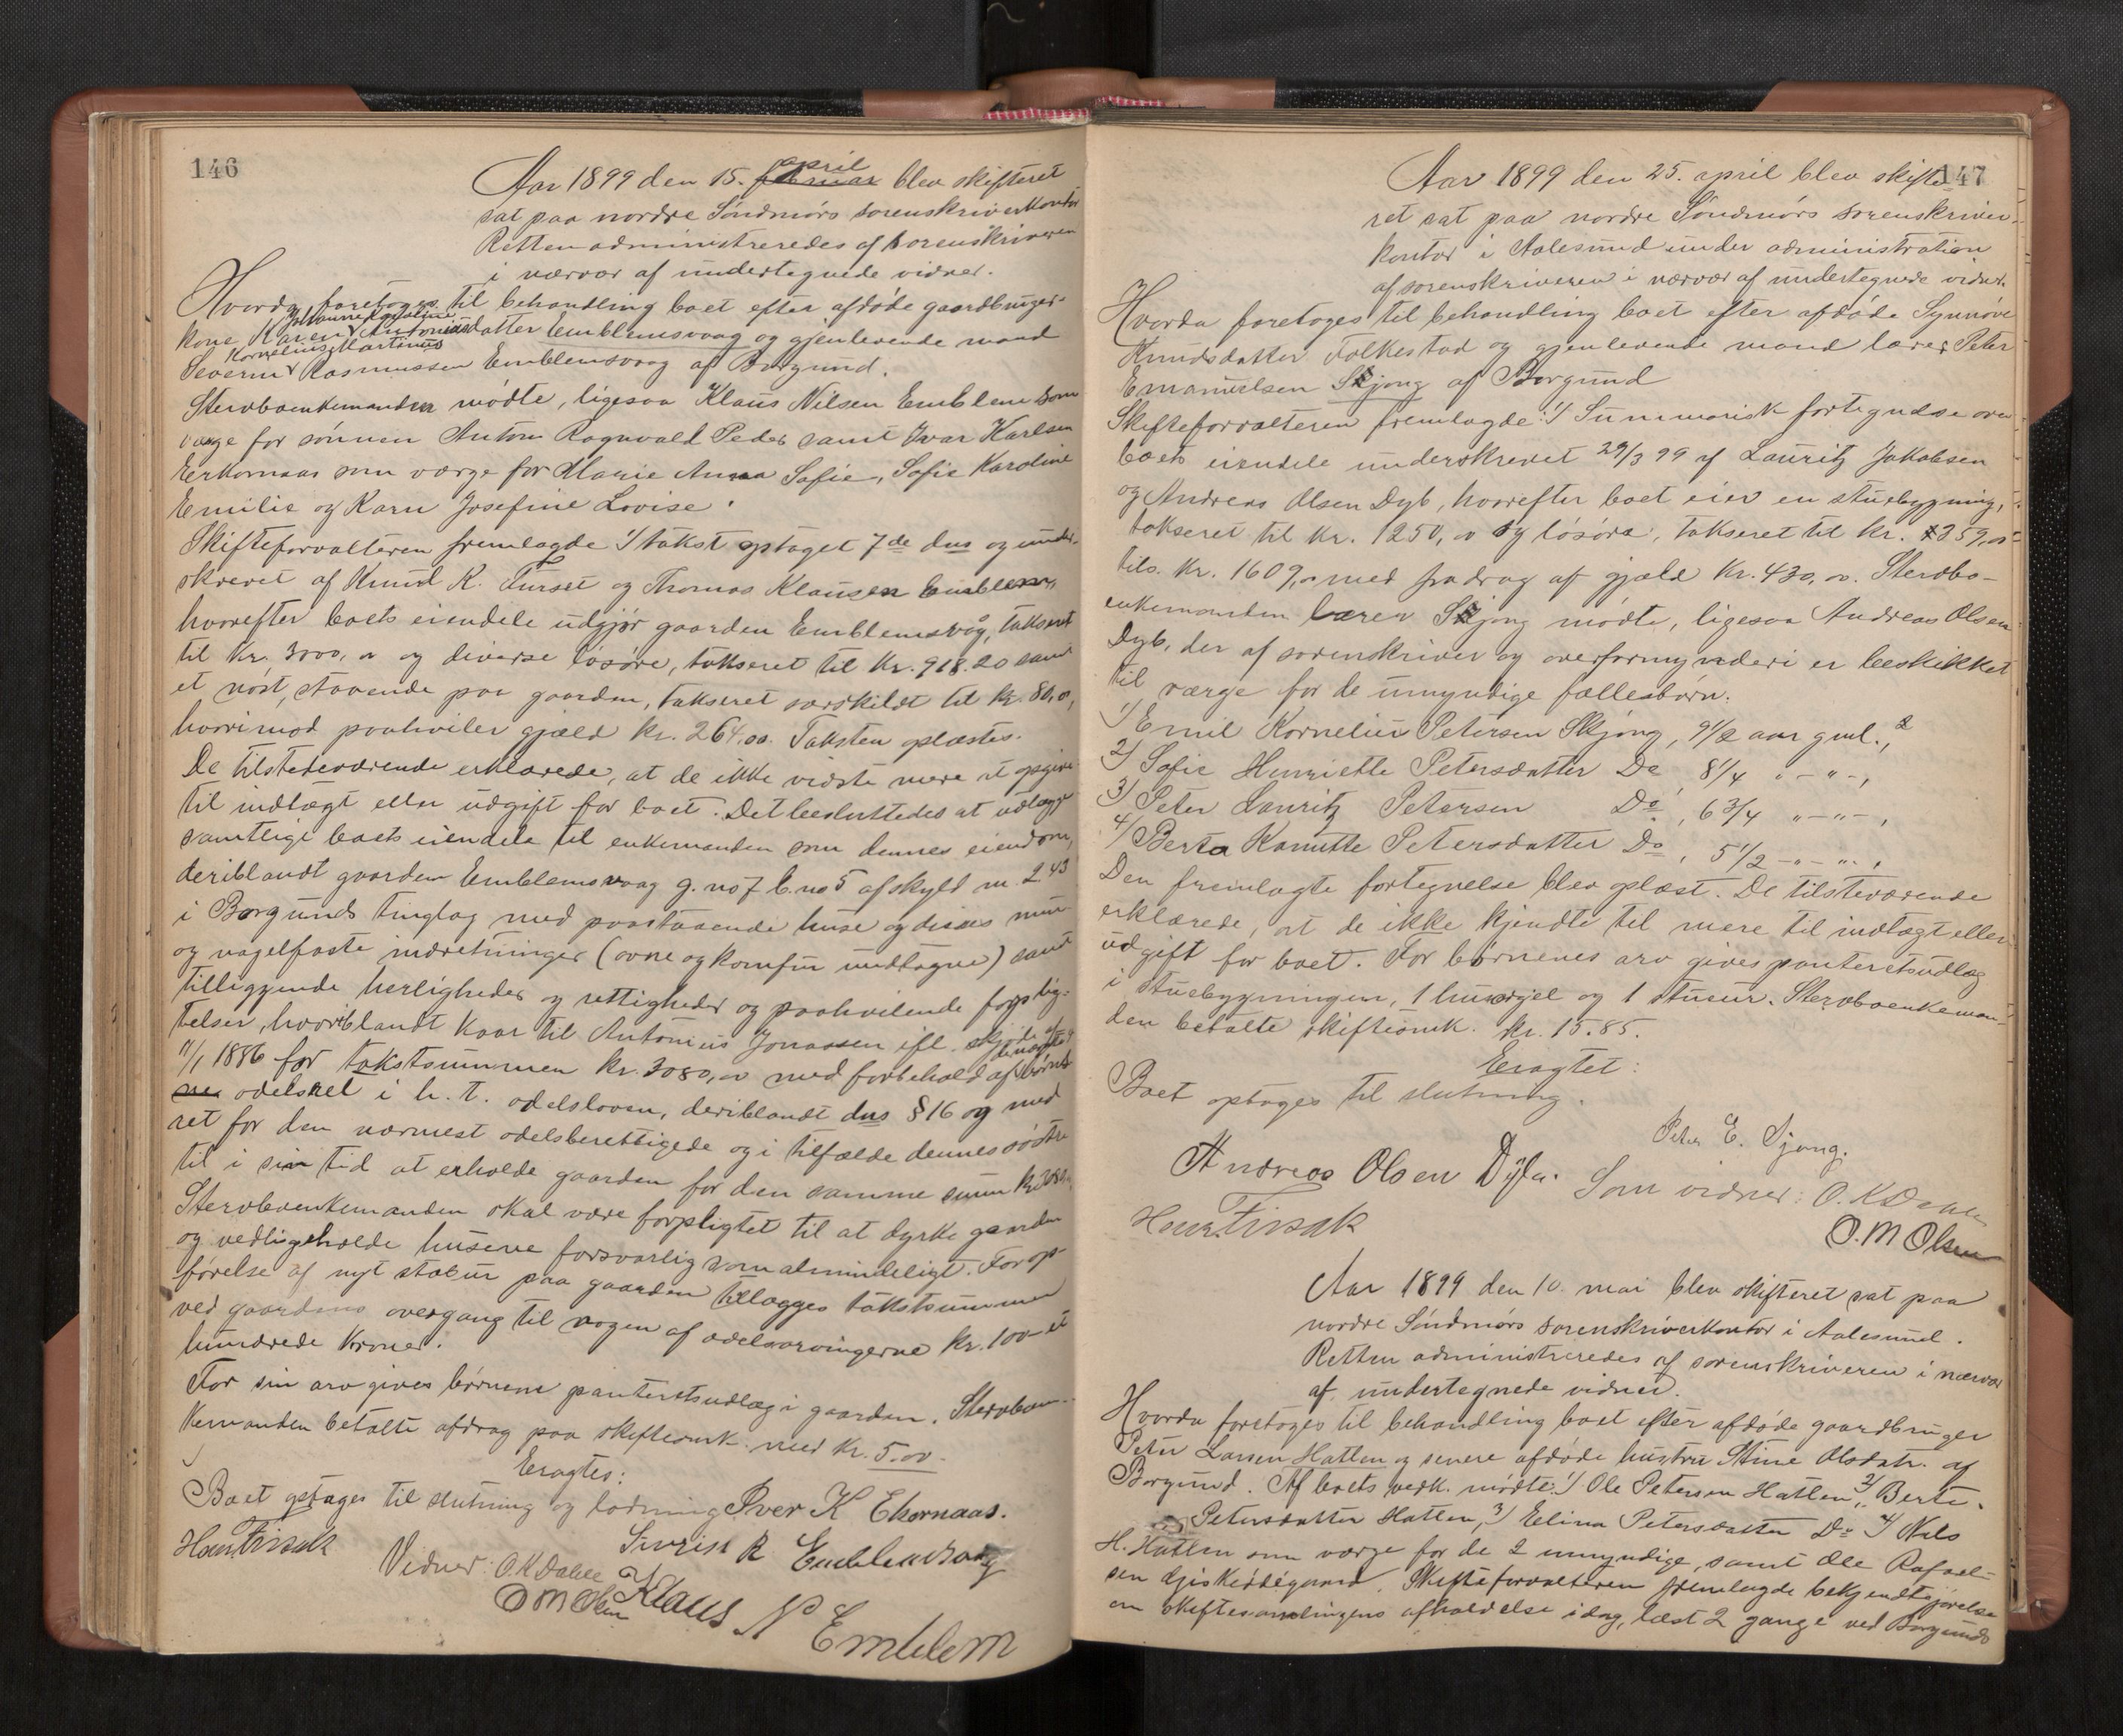 146
Aar 1899 den 15. april februar blev skifteret
sat paa nordre Söndmörs sorenskriverkontor
Retten administreredes af sorenskriveren
i nærvær af undertegnede vidner.
Hvorda foretoges til behandling boet efter afdøde gaardbruger-
kone Karen Antoniusdatter Emblemsvaag og gjenlevende mand
Kornelius Martinus
Severin Rasmussen Emblemsvaag af Borgund.
Stervboenkemanden mødte, ligesaa Klaus Nilsen Emblem som
værge for sønnen Anton Ragnvald Peder samt Ivar Karlsen
Eerkornaas som værge for Marie Anna Sofie, Sofie Karoline
Emilie og Karn Josefine Lovise.
Skifteforvalteren fremlagde 1/ takst optaget 7de ds og under-
skrevet af Knud K. Furset og Thomas Klausen Emblem,
hvorefter boets eiendele udgjør gaarden Emblemsvåg, takseret
til kr. 3000,00 og diverse løsøre, takseret til kr. 918.20 samt
et nøst, staaende paa gaarden, takseret særskildt til kr. 80,00,
hvorimod paahviler gjæld kr. 264,00. Taksten oplæstes.
De tilstedeværende erklærede, at de ikke vidste mere at opgive
til indtægt eller udgift for boet. Det besluttedes at udlægge
samtlige boets eiendele til enkemanden som dennes eiendom,
deriblandt gaarden Emblemsvaag g. no 7 b. no 5 af skyld m. 2 43
i Borgunds tinglag med paastaaende huse og disses mur
og nagelfaste indretninger (ovne og komfur undtagne) samt
tilliggende herligheder og rettigheder og paahvilende forplig-
telser, hvoriblandt kaar til Antonius Jonassen ifl. skjøde af
11/1 1886 for takstsummen kr. 3080,00 med forbehold af børne
nes odelsret i h. t. odelsloven, deriblandt ds § 16 og med
ret for den nærmest odelsberettigede og i tilfælde dennes søstre
til i sin tid at erholde gaarden for den samme sum kr. 3080,
Stervboenkemanden skal være forpligtet til at dyrke gaarden
og vedligeholde husene forsvarlig som almindeligt. For op-
førelse af nyt stabur paa gaarden tillægges takstsummen
ved gaardens overgang til nogen af odelsarvingerne kr. 100 et
hundrede kroner.
For sin arv gives børnene panteretsudlæg i gaarden. Stervboen-
kemanden betalte afdrag paa skifteomk. med kr. 5.00.
Eragtes:
Boet optages til slutning og lodning Iver K Ekornaas.
Severin R Emblemsvaag
Vidner: O. K Dahle
O M Olsen Klaus N Emblem
147
Aar 1899 den 25. april blev skifte-
ret sat paa nordre Söndmörs sorenskriver-
kontor i Aalesund under administration
af sorenskriveren i nærvær af undertegnede vidner.
Hvorda foretoges til behandling boet efter afdøde Synnøve
Knudsdatter Folkestad og gjenlevende mand lærer Peter
Emanuelsen Skjong af Borgund
Skifteforvalteren fremlagde: 1/ Summarisk fortegnelse over
boets eiendele underskrevet 29/3 99 af Lauritz Jakobsen
og Andreas Olsen Dyb, hvorefter boet eier en stuebygning,
takseret til kr. 1250,00 og løsøre, takseret til kr. 359,00
tils. kr. 1609,00 med fradrag af gjæld kr. 430,00. Stervbo-
enkemanden lærer Skjong mødte, ligesaa Andreas Olsen
Dyb, der af sorenskriver og overformynderi er beskikket
til værge for de umyndige fællesbørn.
1) Emil Kornelius Petersen Skjong, 9 1/2 aar gml.,
2) Sofie Henriette Petersdatter Do, 8 1/4 " - " - ,
3) Peter Lauritz Petersen Do, 6 3/4 " - " - ,
4) Berta Kamitte Petersdatter Do, 5 1/2 - " - " - .
Den fremlagte fortegnelse blev oplæst. De tilsteværende
erklærede, at de ikke kjendte til mere til indtægt eller
udgift for boet. For børnenes arv gives panteretsudlæg
i stuebygningen, 1 husorgel og 1 stueur. Stervboenkeman-
den betalte skifteomk. kr. 15.85.
Eragtet:
Boet optages til slutning.
Peter E. Sjong.
Andreas Olsen Dyb. Som vidner: O. K Dahle
O. M Olsen
Aar 1899 den 10. mai blev skifteret sat paa
nordre Söndmörs sorenskriverkontor i Aalesund.
Retten administreredes af sorenskriveren i nærvær
af undertegnede vidner.
Hvorda foretoges til behandling boet efter afdøde gaardbruger
Peter Larsen Hatlen og senere afdøde hustru Stine Olsdatr. af
Borgund. Af boets vedk. mødte: 1/ Ole Petersen Hatlen, 2/ Berte
Petersdatter Hatlen, 3/ Elina Petersdatter Do 4/ Nils
H. Hatlen som værge for de 2 umyndige, samt Ole Rafael-
sen Gjiskeødegaard. Skifteforvalteren fremlagde bekjendtgjørelse
om skiftesamlingens afholdelse idag, læst 2 gange ved Borgunds